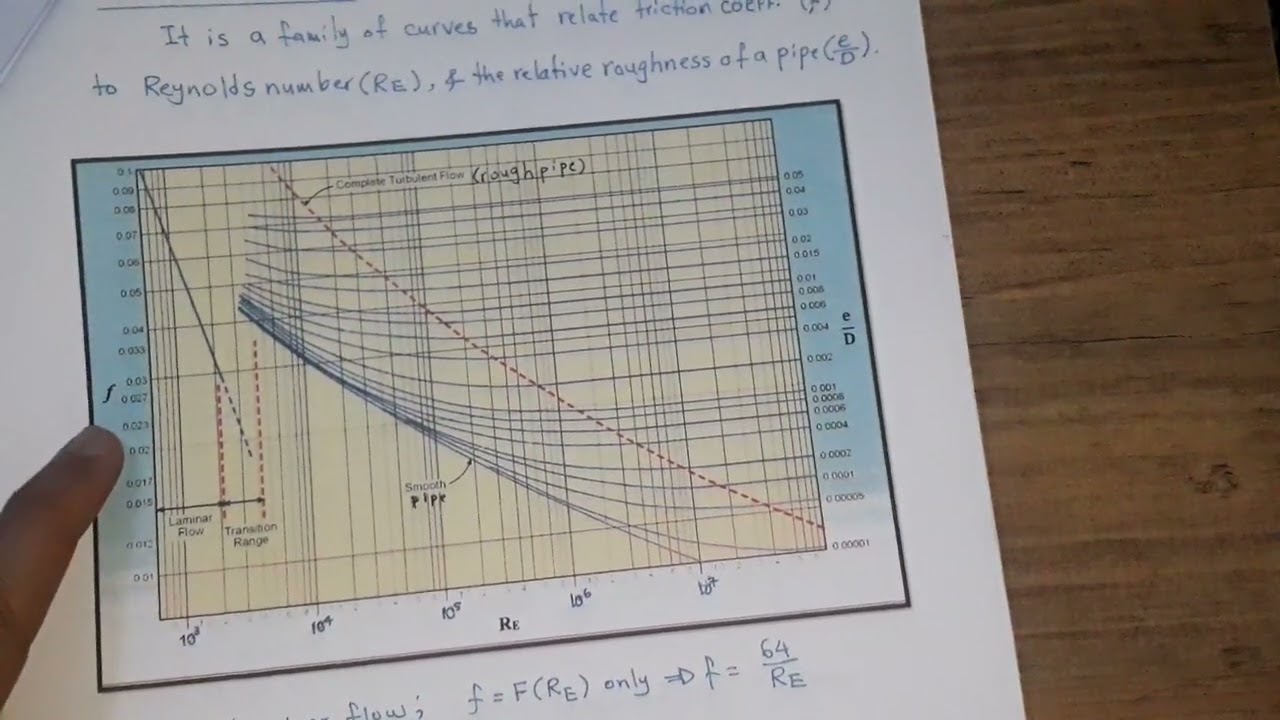 It is a family of curves that relate friction coeff. (f)
to Reynolds number (RE), & the relative roughness of a pipe (e/D).
Complete Turbulent Flow (rough pipe)
0.1
0.09
0.08
0.07
0.06
0.05
0.04
0.033
0.03
0.027
0.023
0.02
0.017
0.015
0.012
0.01
f
0.05
0.04
0.03
0.02
0.015
0.01
0.008
0.006
0.004
0.002
0.001
0.0008
0.0006
0.0004
0.0002
0.0001
0.00005
0.00001
e/D
Smooth
pipe
Laminar
Flow
Transition
Range
10³ 10⁴ 10⁵ 10⁶ 10⁷
RE
flow; f = F(RE) only ⇒ f = 64/RE